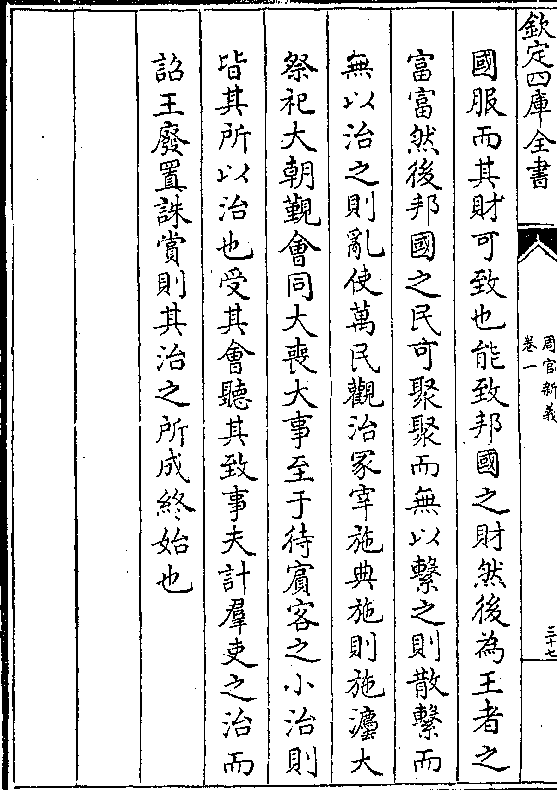 欽定四庫全書
周官新義
卷一
三十七
國服而其財可致也能致邦國之財然後為王者之
富富然後邦國之民可聚聚而無以繫之則散繫而
無以治之則亂使萬民觀治冢宰施典施則施灋大
祭祀大朝覲會同大喪大事至于待賔客之小治則
皆其所以治也受其會聽其致事夫計羣吏之治而
詔王廢置誅賞則其治之所成終始也